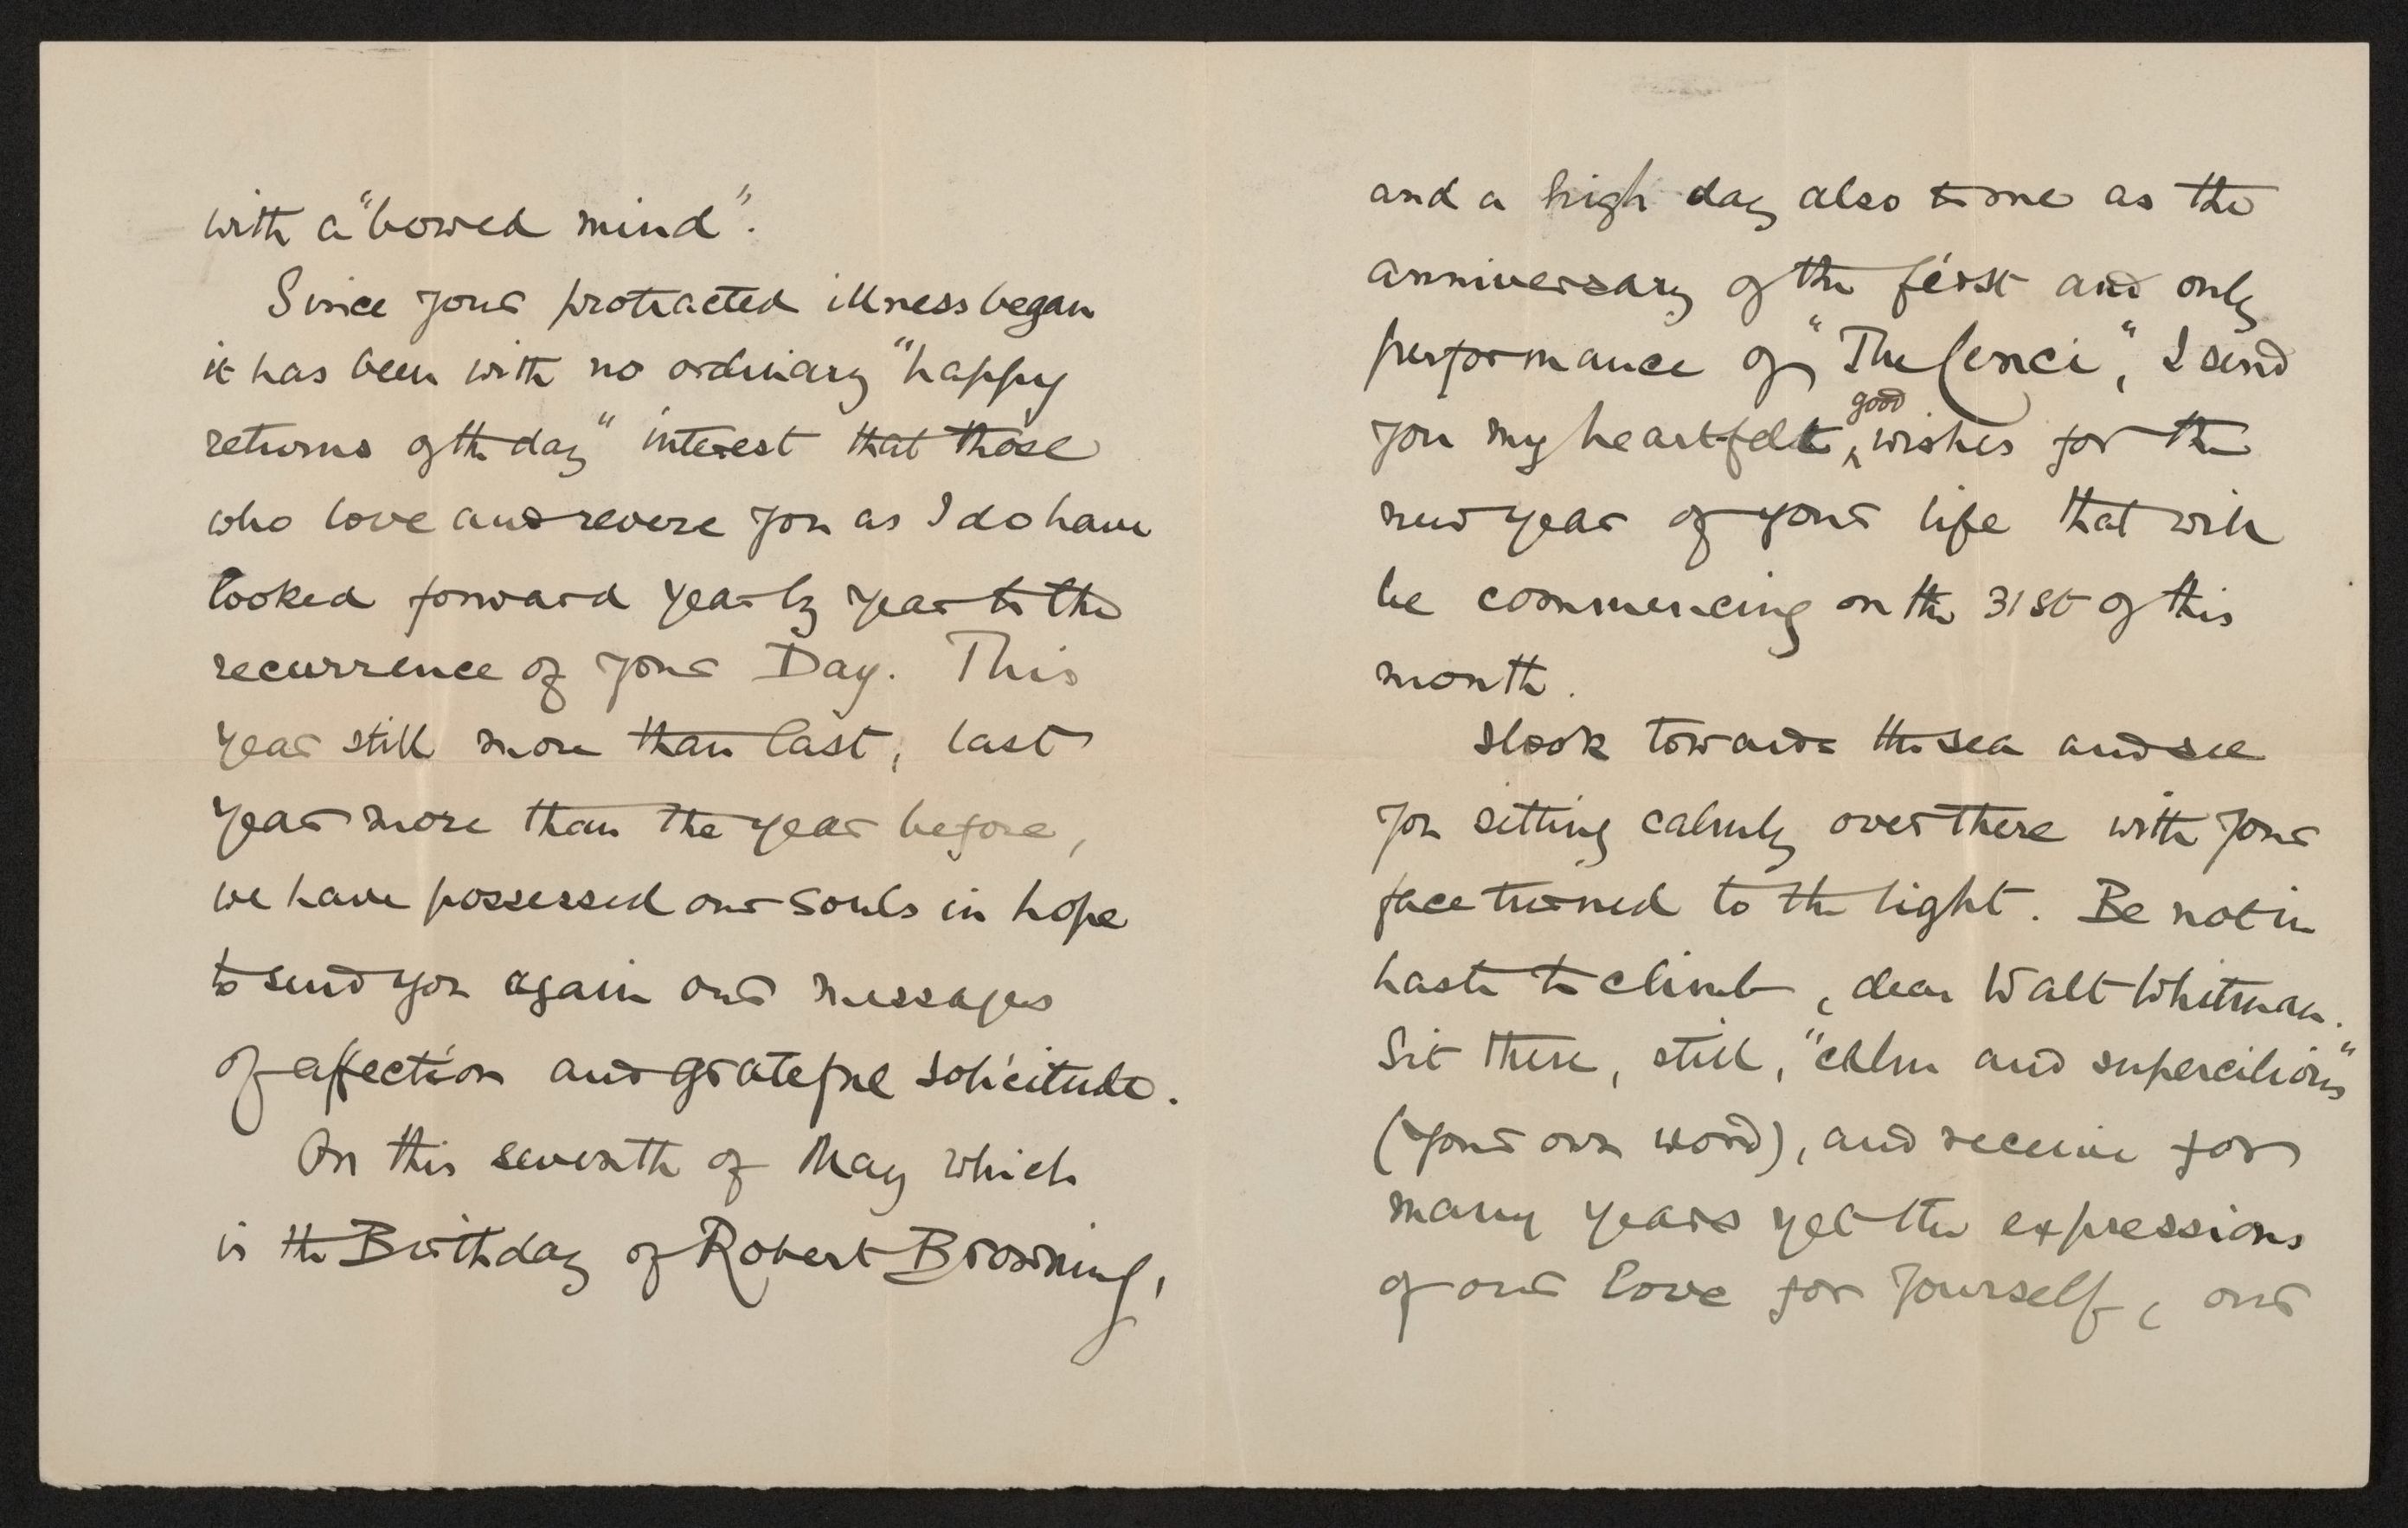 with a "bowed mind".
Since your protracted illness began
it has been with no ordinary "happy
returns of the day" interest that those
who love and revere you as I do have
looked forward year by year to the
recurrence of your Day. This
year still more than last, last
year more than the year before,
we have possessed our souls in hope
to send you again our messages
of affection and grateful solicitude.
On this seventh of May which
is the Birthday of Robert Browning,
and a high day also to me as the
anniversary of the first and only
performance of "The Cenci", I send
you my heartfelt good wishes for the
new year of your life that will
be commencing on the 31st of this
month.
I look towards the sea and see
you sitting calmly over there with your
face turned to the light. Be not in
haste to climb, dear Walt Whitman.
Sit there, still, "calm and supercilious"
(your own word), and receive for
many years yet the expressions
of our love for yourself, our